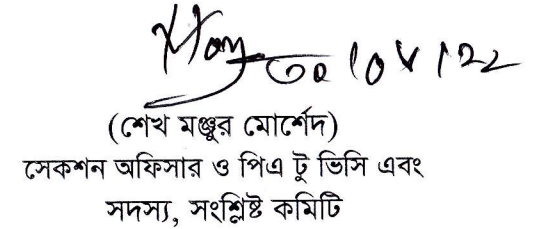 (শেখ মঞ্জুর মোর্শেদ)
সেকশন অফিসার ও পিএ টু ভিসি এবং
সদস্য, সংশ্লিষ্ট কমিটি